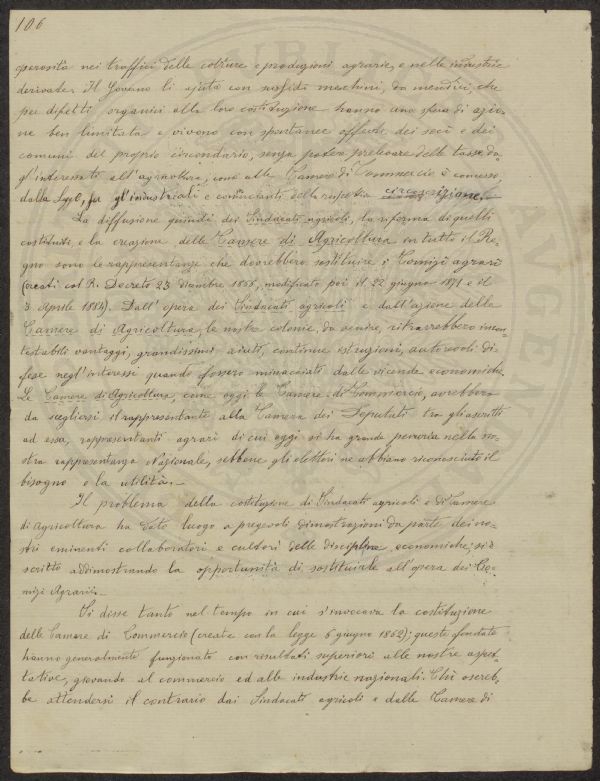 106
operosità nei traffici delle colture e produzioni agrarie, e nelle industrie
derivate. Il Governo li ajuta con sussidi meschini, da mendici, che
per difetti organici alla loro costituzione hanno una sfera di azio-
ne ben limitata e vivono con spontanee offerte dei soci e dei
comuni del proprio circondario, senza potere prelevare delle tasse da-
gl'interessati all'agricoltura, come alle Camere di Commercio è concesso
dalla legge, per gl'industriali e commercianti della rispettiva circoscrizione.-
La diffusione quindi dei Sindacati agricoli, la riforma di quelli
costituiti, e la creazione delle Camere di Agricoltura in tutto il Re-
gno sono le rappresentanze che dovrebbero sostituire i Comizi agrari
(creati col R. Decreto 23 dicembre 1866, modificato poi il 22 giugno 1871 e il
3 Aprile 1884). Dall'opera dei Sindacati agricoli e dall'azione delle
Camere di Agricoltura, le nostre colonie, da venire, ritrarrebbero incon-
testabili vantaggi, grandissimi aiuti, continue istruzioni, autorevoli di-
fese negl'interessi quando fossero minacciati dalle vicende economiche.
Le Camere di Agricoltura, come oggi le Camere di Commercio, avrebbero
da scegliersi il rappresentante alla Camera dei Deputati tra gli ascritti
ad essa, rappresentanti agrari di cui oggi vi ha grande penuria nella no-
stra rappresentanza Nazionale, sebbene gli elettori ne abbiano riconosciuto il
bisogno e la utilità.-
Il problema della costituzione di Sindacati agricoli e di Camere
di Agricoltura ha dato luogo a pregevoli dimostrazioni da parte dei no-
stri eminenti collaboratori e cultori delle discipline economiche; si è
scritto addimostrando la opportunità di sostituirle all'opera dei Co-
mizi Agrari.-
Si disse tanto nel tempo in cui s'invocava la costituzione
delle Camere di Commercio (create con la legge 6 giugno 1862); queste
hanno generalmente funzionato con resultati superiori alle nostre aspet-
tative, giovando al commercio ed alle industrie nazionali. Chi osereb-
be attendersi il contrario dai Sindacati agricoli e dalle Camere di